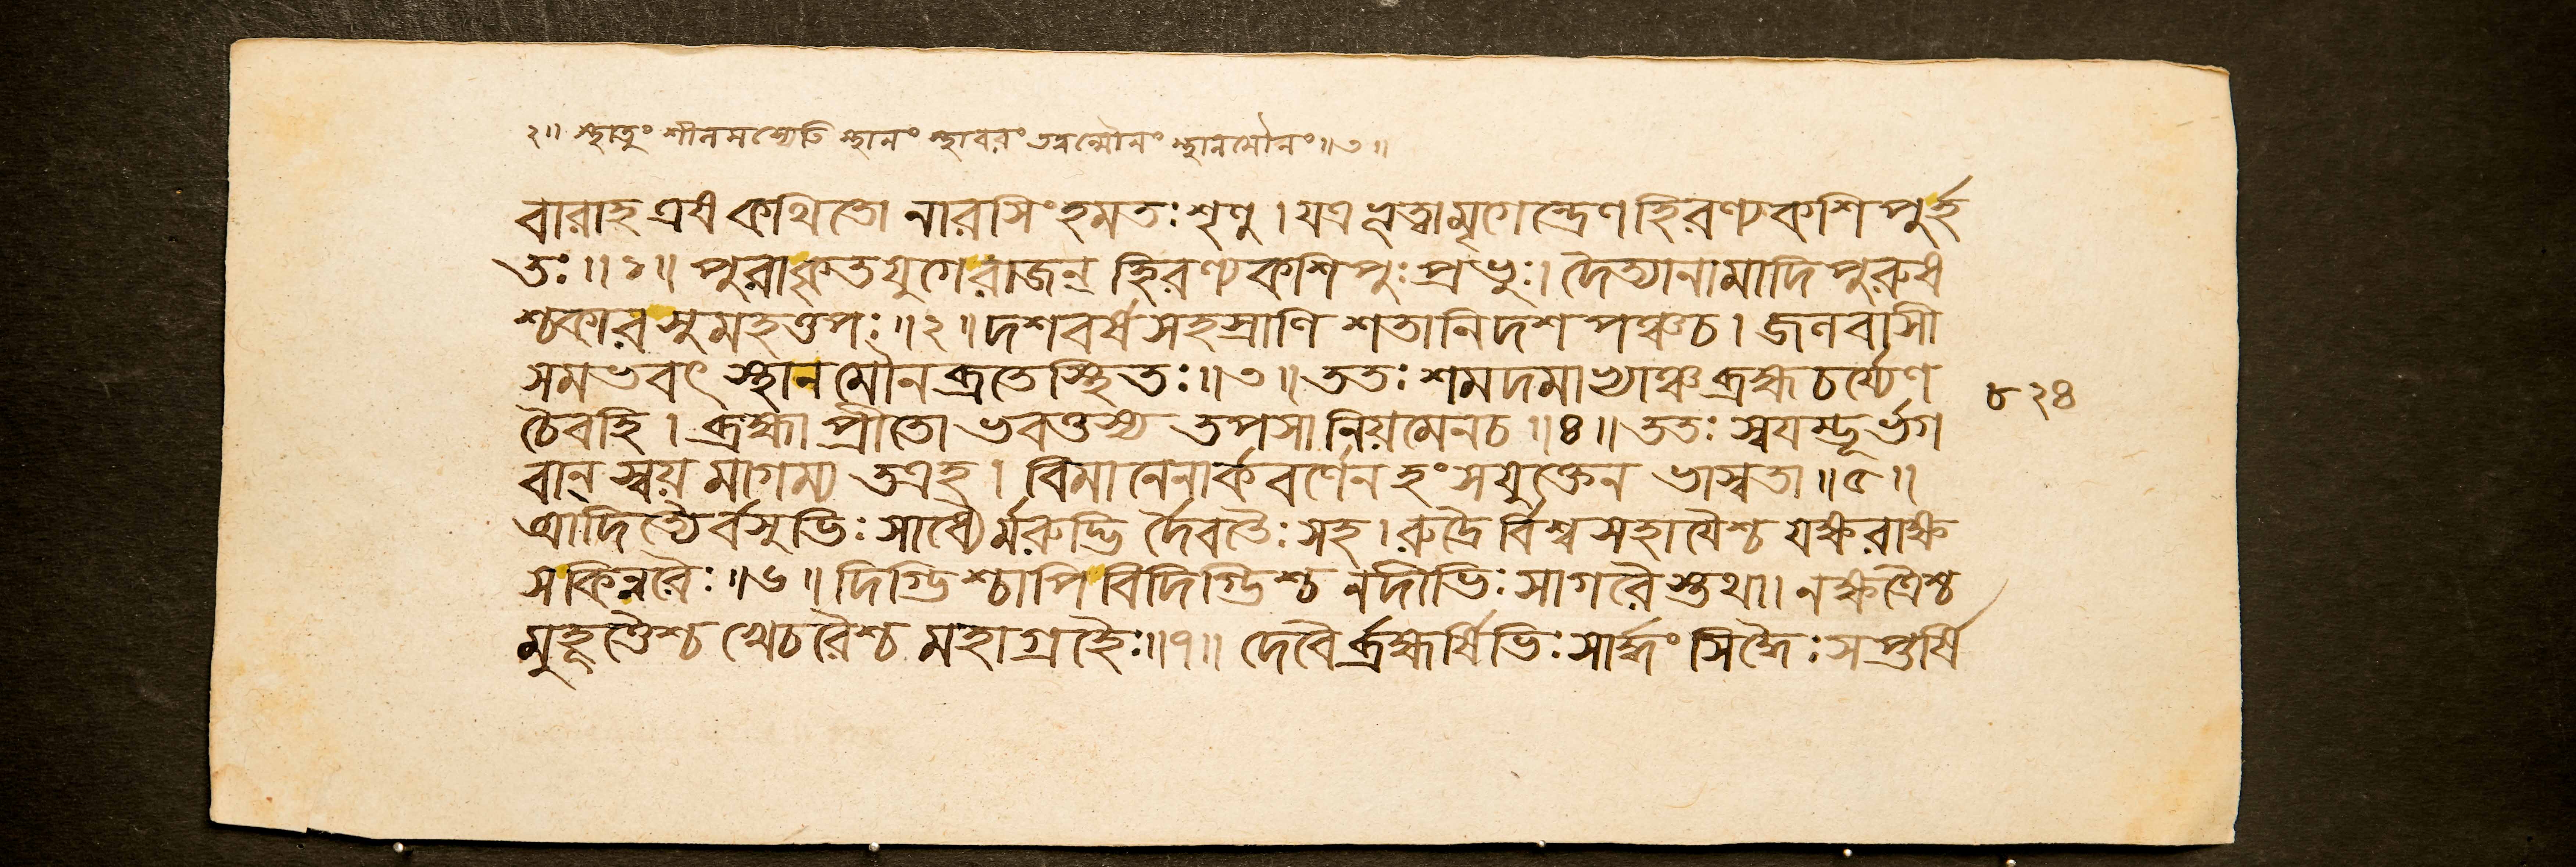 ২॥ স্থাতুং শীলমস্যেতি স্থানং স্থাবরং তদ্বন্মৌনং স্থানমৌনং॥৩॥
বারাহ এষ কথিতো নারসিংহমতঃ শৃণু । যত্র ভূত্বা মৃগেন্দ্রেণ হিরণ্যকশিপুর্হ
তঃ॥১॥ পুরাকৃতযুগে রাজন্ হিরণ্যকশিপুঃ প্রভুঃ। দৈত্যানামাদিপুরুষ
শ্চকার সুমহত্তপঃ॥২॥ দশবর্ষসহস্রাণি শতানি দশ পঞ্চ চ। জলবাসী
সমভবৎ স্থানমৌনব্রতে স্থিতঃ॥৩॥ ততঃ শমদমাভ্যাঞ্চ ব্রহ্মচর্য্যেণ
চৈবহি । ব্রহ্মা প্রীতো ভবত্তস্য তপসা নিয়মেন চ॥৪॥ ততঃ স্বয়ম্ভূর্ভগ
বান্ স্বয়মাগম্য তত্রহ । বিমানেনার্কবর্ণেন হংসযুক্তেন ভাস্বতা॥৫॥
আদিত্যৈর্বসুভিঃ সাধ্যৈর্মরুদ্ভির্দৈবতৈঃ সহ । রুদ্রৈর্বিশ্বসহায়ৈশ্চ যক্ষরাক্ষ
সকিন্নরৈঃ॥৬॥ দিগ্ভিশ্চাপি বিদিগ্ভিশ্চ নদীভিঃ সাগরৈস্তথা। নক্ষত্রৈশ্চ
মুহূর্তৈশ্চ খেচরৈশ্চ মহাগ্রহৈঃ॥৭॥ দেবৈর্ব্রহ্মর্ষিভিঃ সার্দ্ধং সিদ্ধৈঃ সপ্তর্ষি
৮২৪